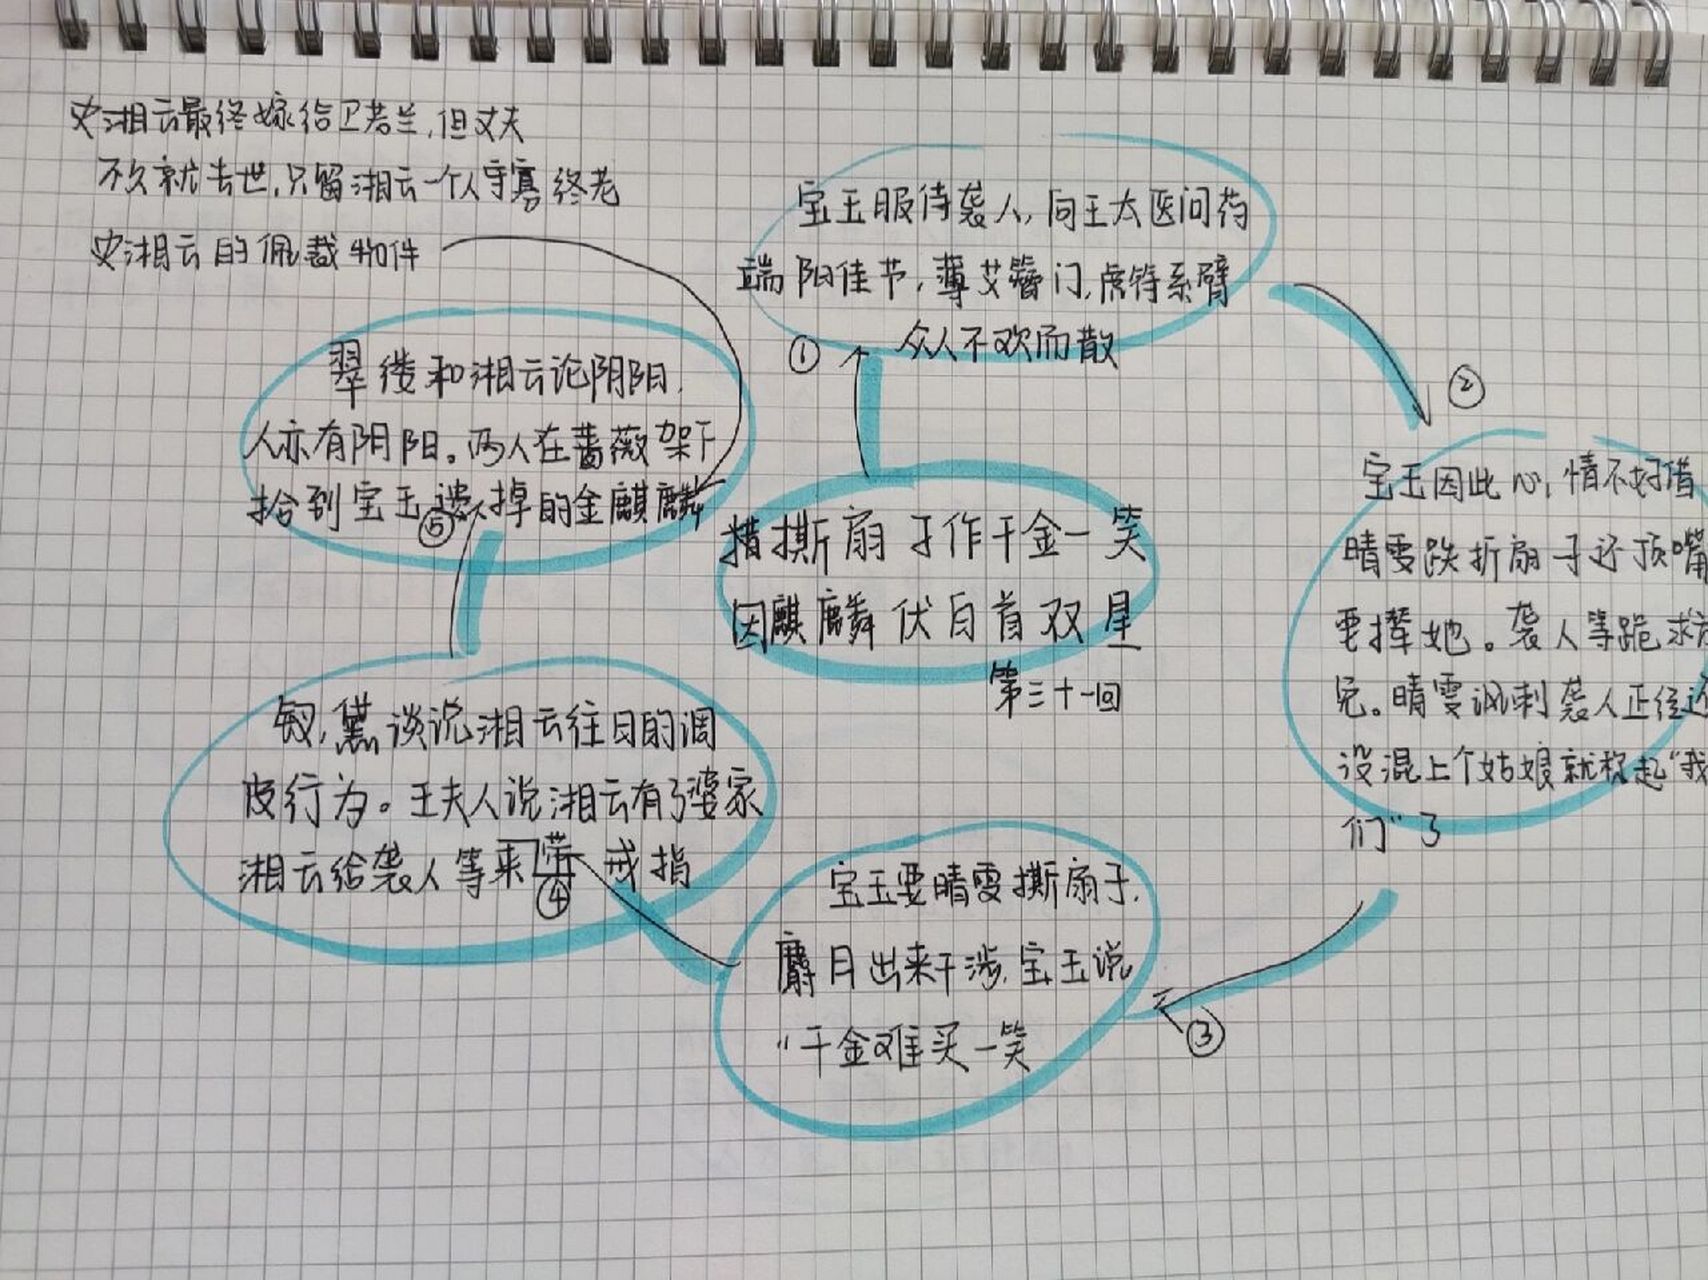 史湘云最终嫁给卫若兰,但丈夫
不久就去世,只留湘云一个人守寡终老
史湘云的佩戴物件
宝玉服侍袭人,向王太医问药
端阳佳节,蒲艾簪门,虎符系臂
众人不欢而散
①
②
宝玉因此心情不好借
晴雯跌折扇子还顶嘴
要撵她。袭人等跪求
免。晴雯讽刺袭人正经还
没混上个姑娘就称起“我
们”了
③
宝玉要晴雯撕扇子,
麝月出来干涉,宝玉说
“千金难买一笑
④
钗,黛谈说湘云往日的调
皮行为。王夫人说湘云有了婆家
湘云给袭人等来带戒指
⑤
翠缕和湘云论阴阳,
人亦有阴阳。两人在蔷薇架下
拾到宝玉遗掉的金麒麟
撕扇子作千金一笑
因麒麟伏白首双星
第三十一回